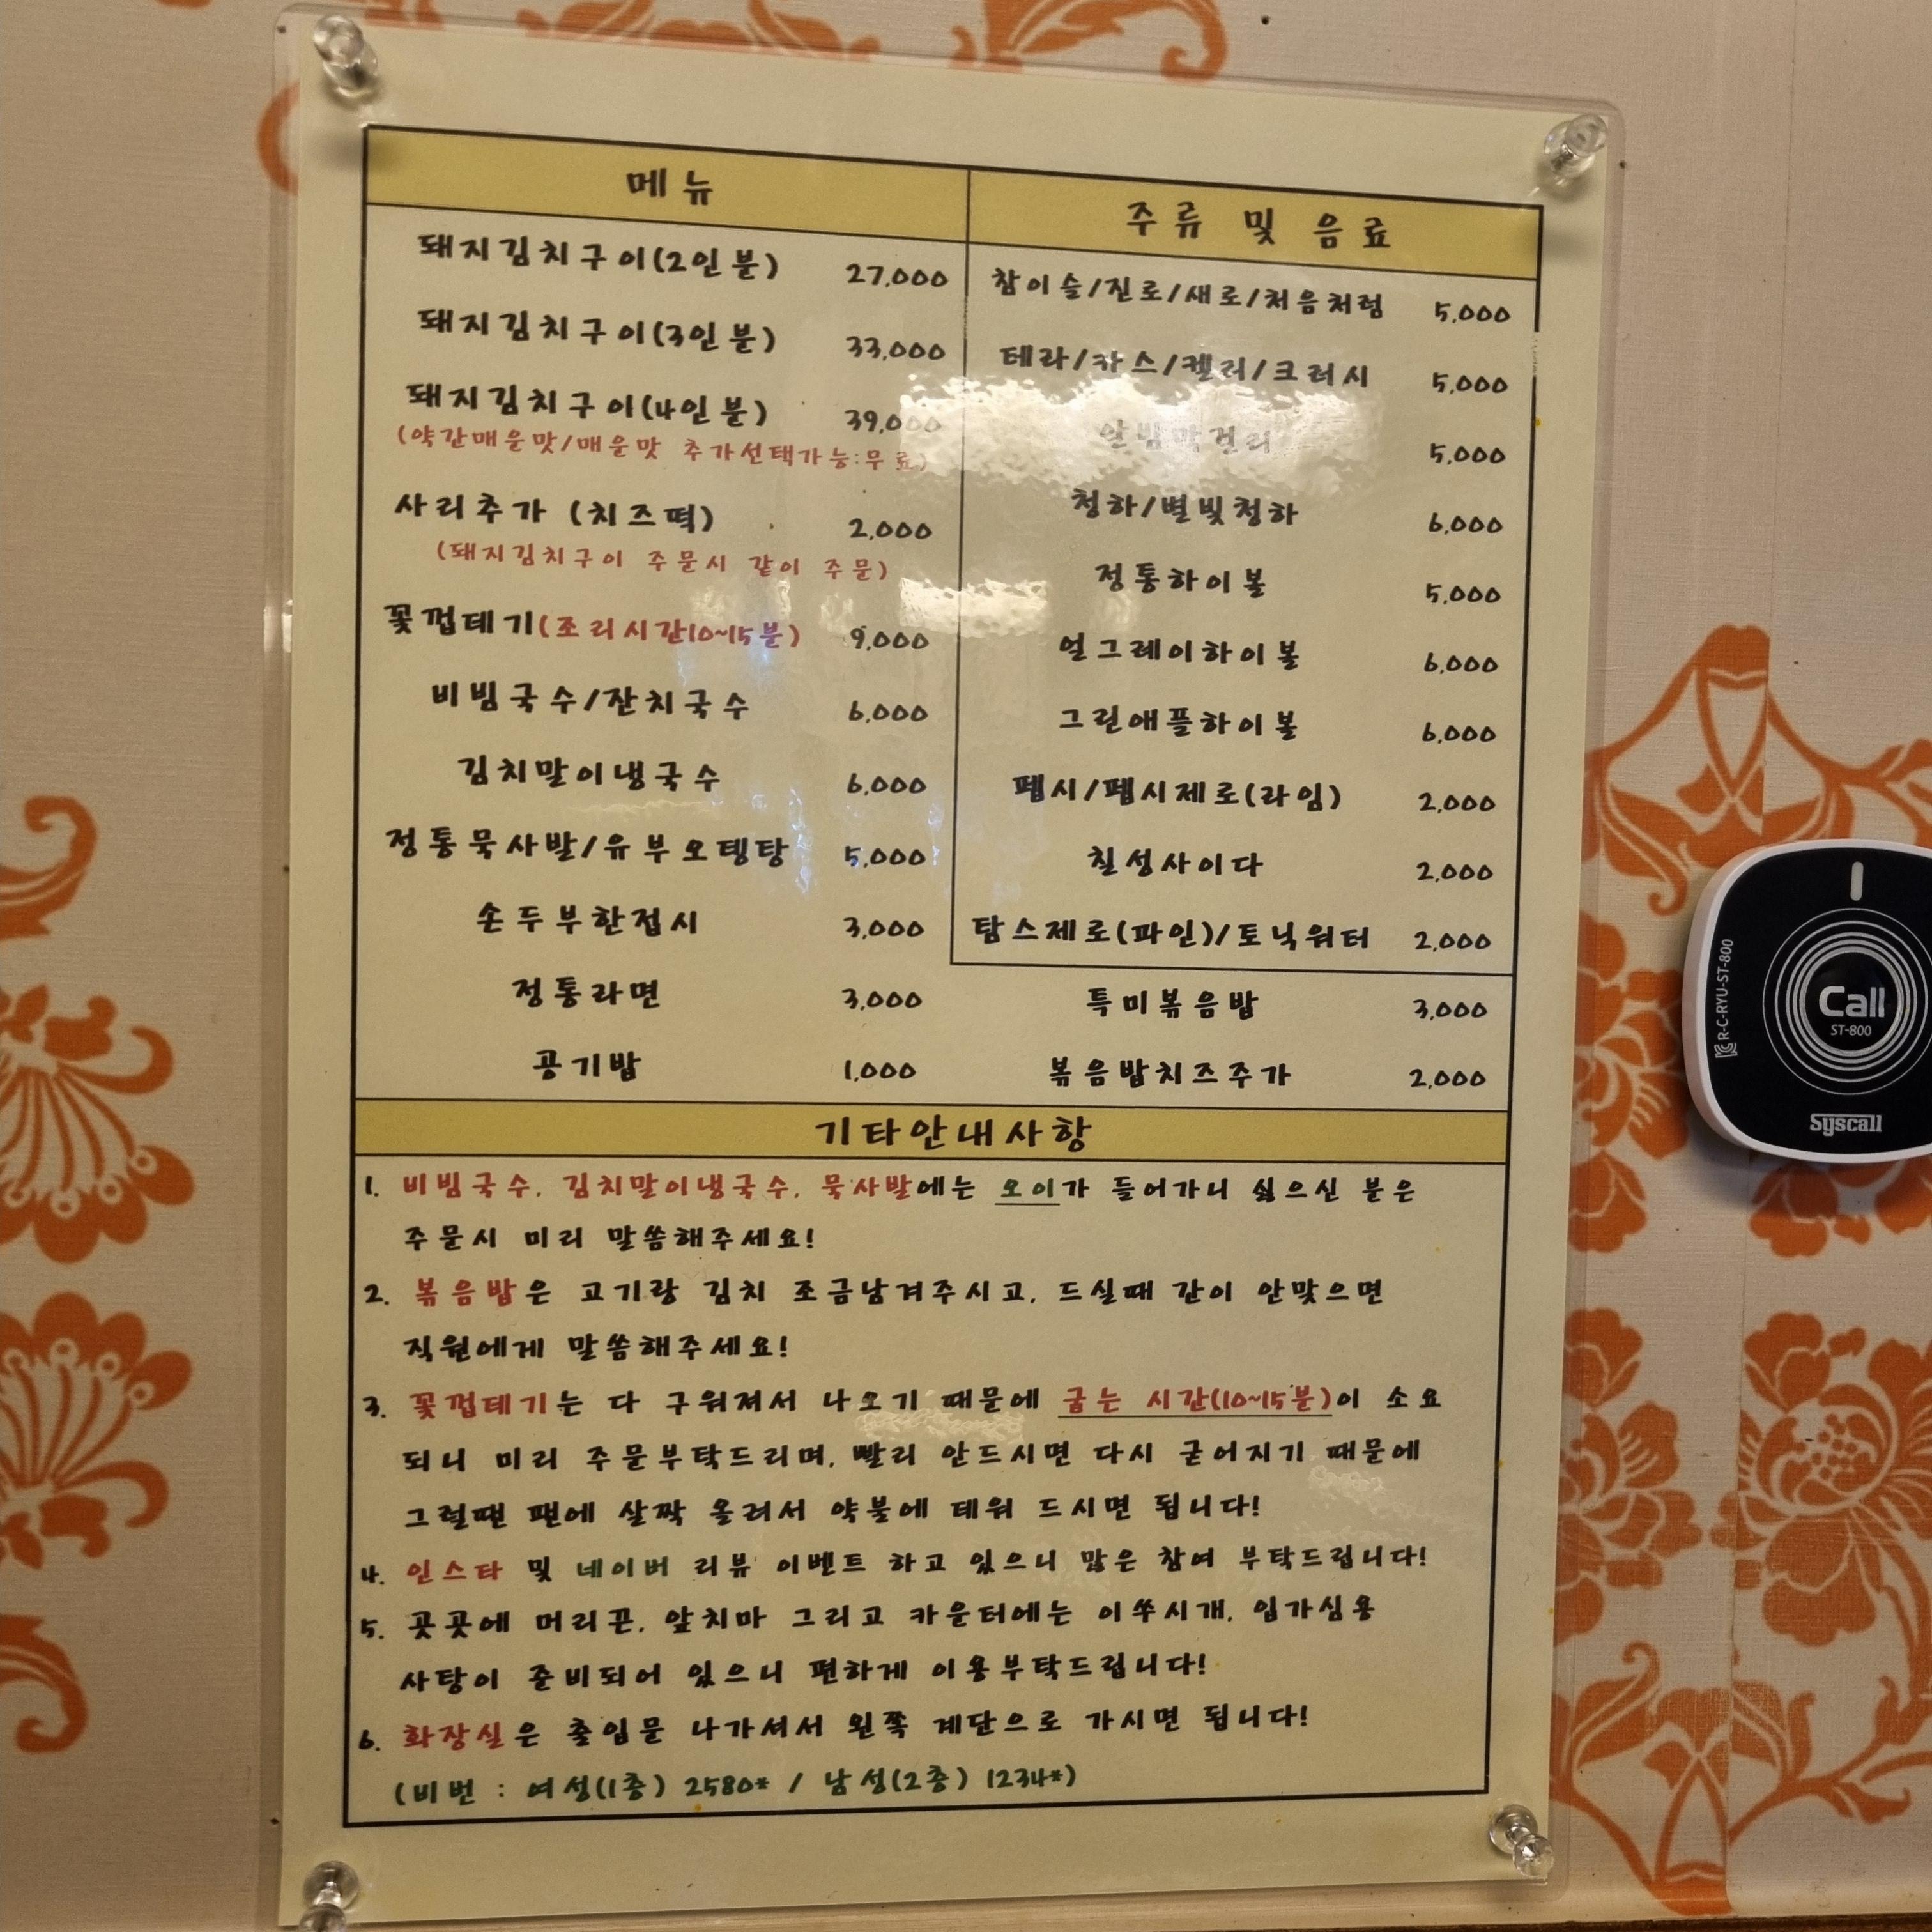 메뉴
돼지김치구이(2인분) 27,000
돼지김치구이(3인분) 33,000
돼지김치구이(4인분) 39,000
(약간매운맛/매운맛 추가선택가능:무료)
사리추가 (치즈떡) 2,000
(돼지김치구이 주문시 같이 주문)
꽃껍데기(조리시간10~15분) 9,000
비빔국수/잔치국수 6,000
김치말이냉국수 6,000
정통묵사발/유부오뎅탕 5,000
손두부한접시 3,000
정통라면 3,000
공기밥 1,000
주류 및 음료
참이슬/진로/새로/처음처럼 5,000
테라/카스/켈리/크러시 5,000
알밤막걸리 5,000
청하/별빛청하 6,000
정통하이볼 5,000
얼그레이하이볼 6,000
그린애플하이볼 6,000
펩시/펩시제로(라임) 2,000
칠성사이다 2,000
탐스제로(파인)/토닉워터 2,000
특미볶음밥 3,000
볶음밥치즈추가 2,000
기타안내사항
1. 비빔국수, 김치말이냉국수, 묵사발에는 오이가 들어가니 싫으신 분은
주문시 미리 말씀해주세요!
2. 볶음밥은 고기랑 김치 조금남겨주시고, 드실때 간이 안맞으면
직원에게 말씀해주세요!
3. 꽃껍데기는 다 구워져서 나오기 때문에 굽는 시간(10~15분)이 소요
되니 미리 주문부탁드리며, 빨리 안드시면 다시 굳어지기 때문에
그럴땐 팬에 살짝 올려서 약불에 데워 드시면 됩니다!
4. 인스타 및 네이버 리뷰 이벤트 하고 있으니 많은 참여 부탁드립니다!
5. 곳곳에 머리끈, 앞치마 그리고 카운터에는 이쑤시개, 입가심용
사탕이 준비되어 있으니 편하게 이용부탁드립니다!
6. 화장실은 출입문 나가셔서 왼쪽 계단으로 가시면 됩니다!
(비번 : 여성(1층) 2580* / 남성(2층) 1234*)
R-C-RYU-ST-800
Call
ST-800
Syscall